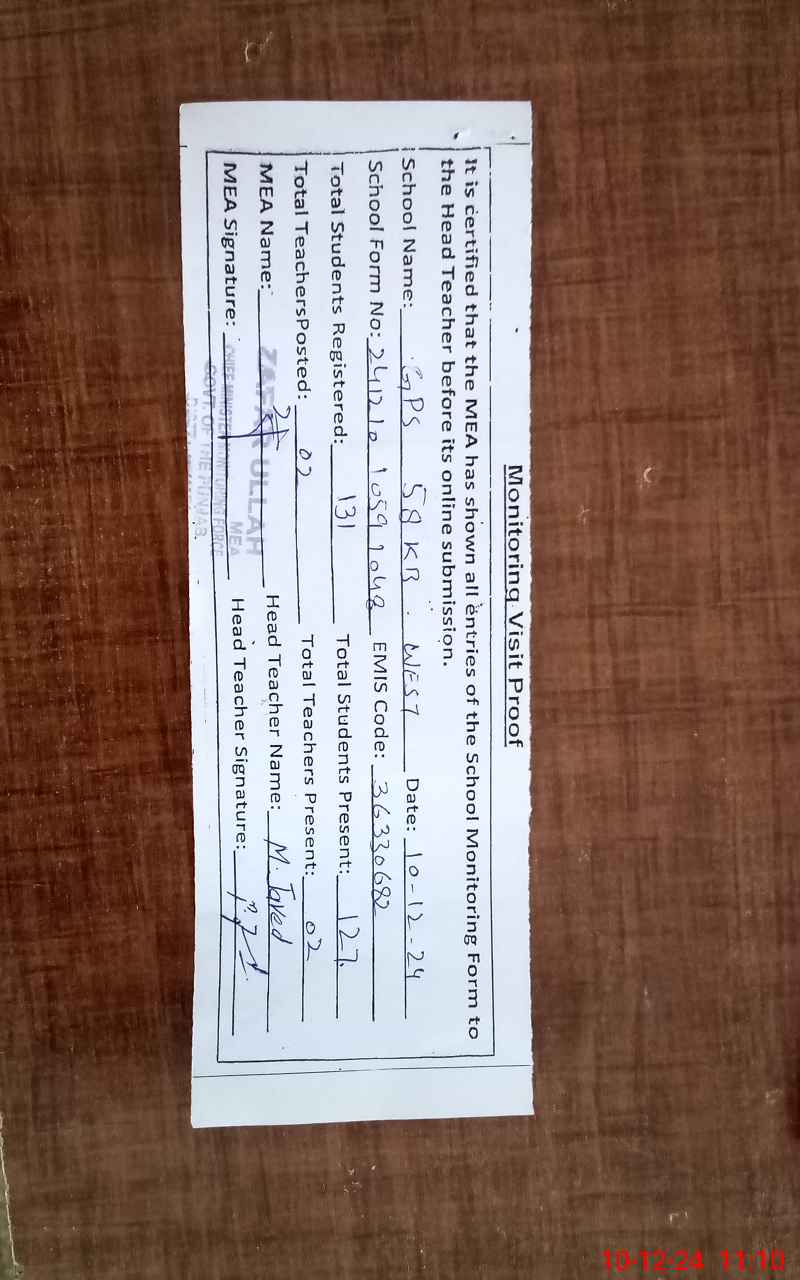 Monitoring Visit Proof
It is certified that the MEA has shown all entries of the School Monitoring Form to
the Head Teacher before its online submission.
School Name: GPS 58 KB. WEST Date: 10-12-24
School Form No: EMIS Code: 36330682
Total Students Registered: 131 Total Students Present: 127
Total TeachersPosted: 02 Total Teachers Present: 02
MEA Name: ZAFAR ULLAH Head Teacher Name: M. Javed
MEA Signature: Head Teacher Signature:
MEA
CHIEF MINISTER MONITORING FORCE
GOVT. OF THE PUNJAB.
10-12-24 11:10